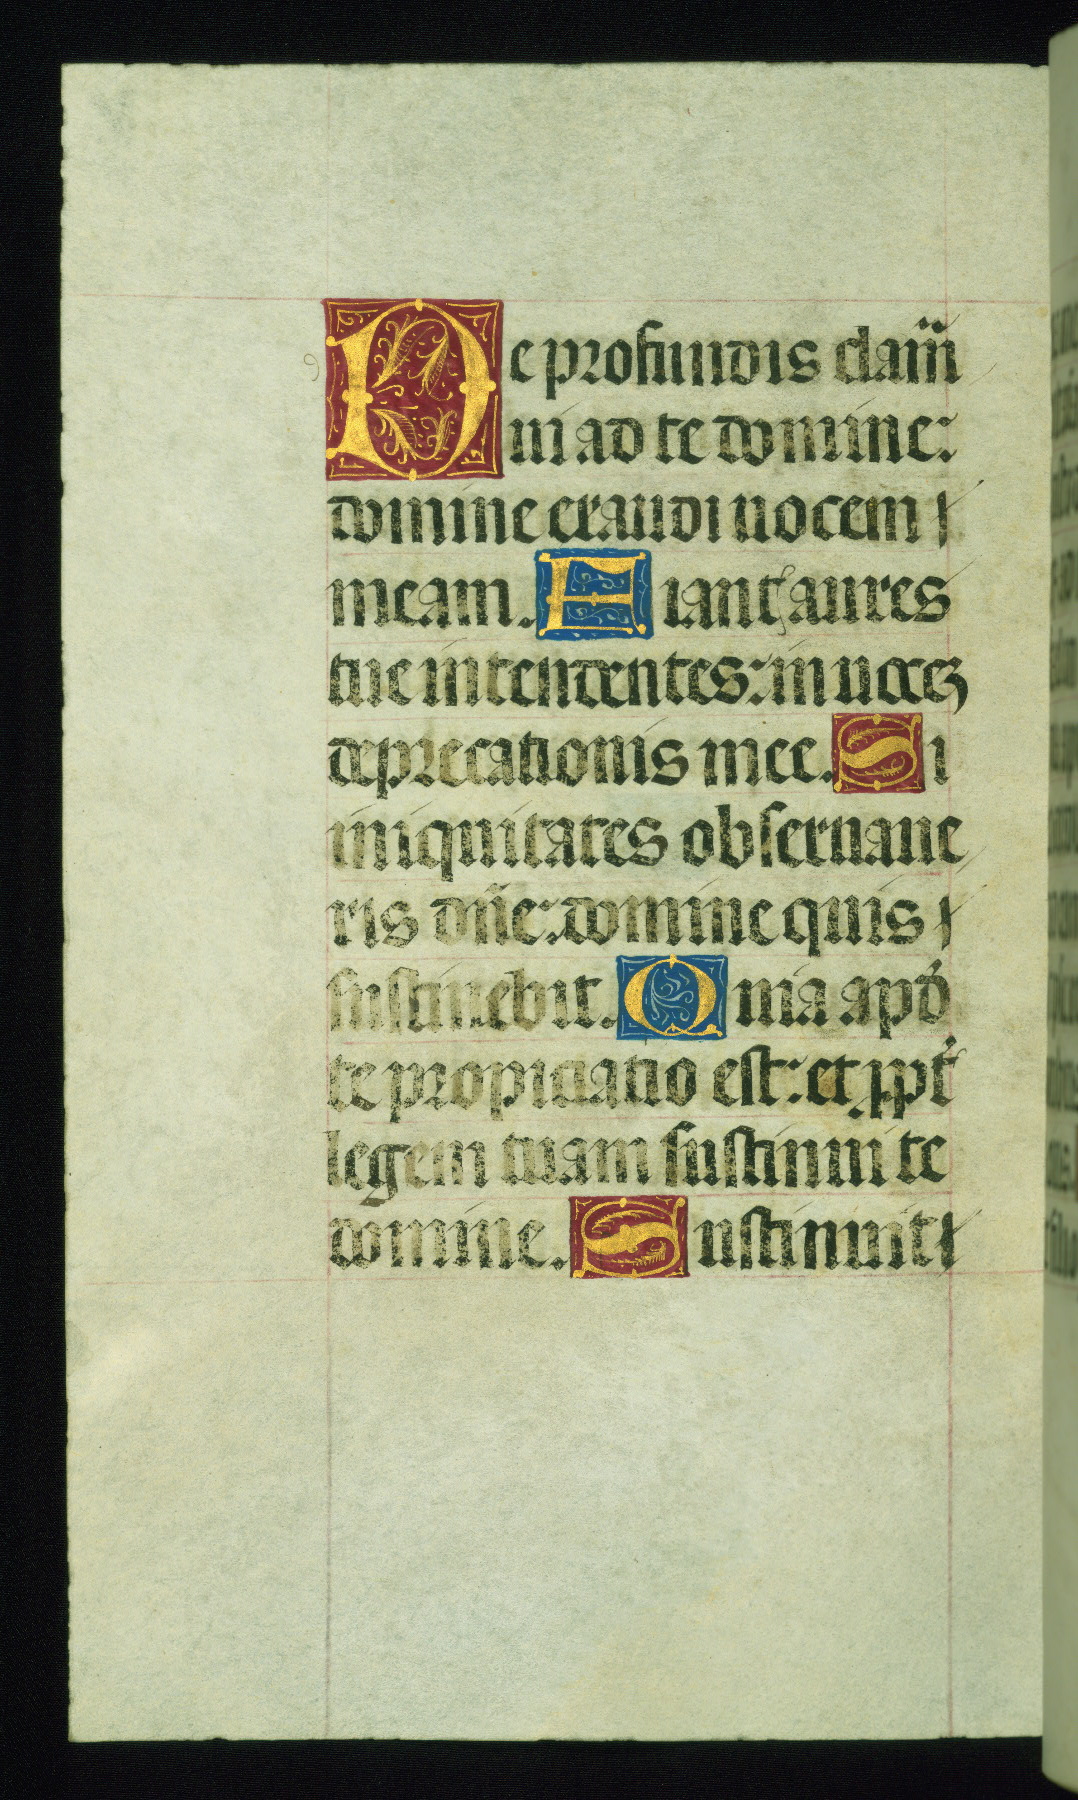 De profundis clam̅
ui ad te domine:
domine exaudi uocem
meam. Fiant aures
tue intendentes: in uocez
deprecationis mee. Si
iniquitates obseruaue
ris dn̅e: domine quis
sustinebit. Quia apd̕
te propiciatio est: et ꝓpt̕
legem tuam sustinui te
domine. Sustinuit